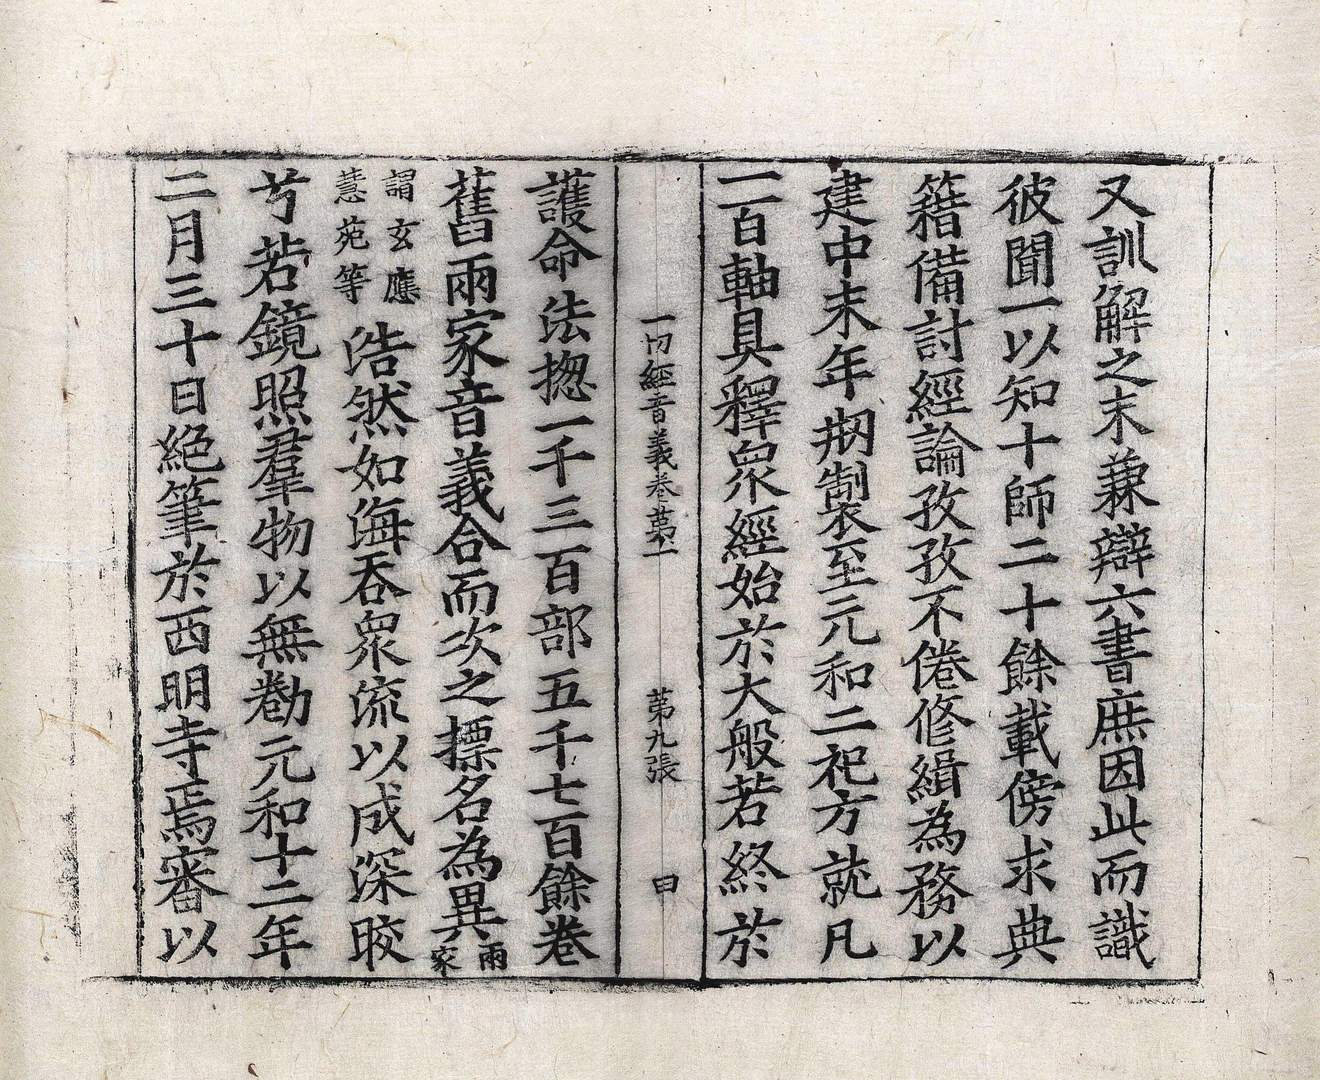 又訓解之末兼辯六書庶因此而識
彼聞一以知十師二十餘載傍求典
籍備討經論孜孜不倦修緝為務以
建中末年剏製至元和二祀方就凡
一百軸具釋衆經始於大般若終於
一切經音義卷第一 第九張 曰
護命法揔一千三百部五千七百餘卷
舊兩家音義合而次之摽名為異兩家
謂玄應慧苑等浩然如海吞衆流以成深皎
兮若鏡照羣物以無勌元和十二年
二月三十日絕筆於西明寺焉審以